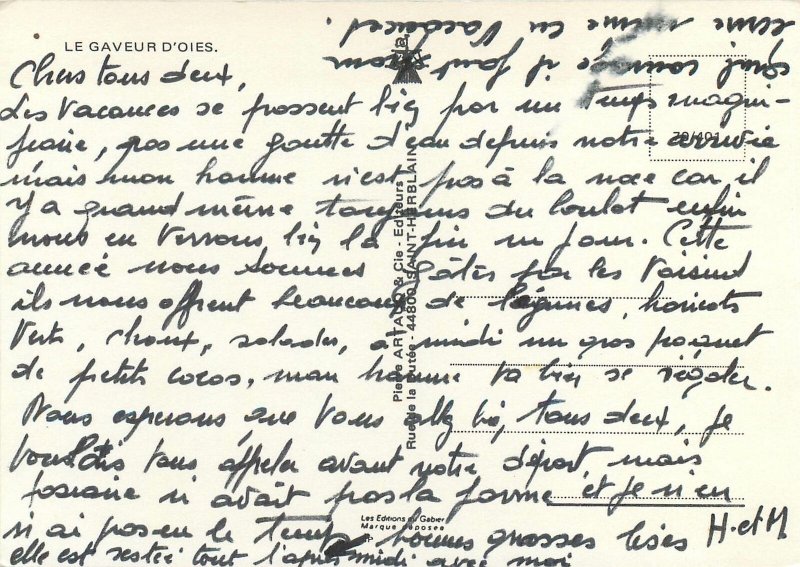 LE GAVEUR D'OIES.
Chers tous deux,
Les Vacances se passent bien par un temps magni-
fique, pas une goutte d'eau depuis notre arrivée
mais mon homme n'est pas à la noce car il
y a quand même toujours du boulot enfin
nous en verrons bien la fin un jour. Cette
année nous sommes gâtés par les voisins
ils nous offrent beaucoup de légumes, haricots
verts, choux, salades, à midi un gros paquet
de petits cocos, mon homme va bien se régaler.
Nous espérons que vous allez bien, tous deux, je
voulais vous appeler avant notre départ mais
n'avait pas la forme et je n'en
n'ai pas eu le temps bonnes grosses bises H. et M
elle est restée tout l'après midi avec moi
il faut
comme même en vacances !
Pierre ARTAUD & Cie - Editeurs
Rue de la - 44800 SAINT-HERBLAIN
79/491
Les Editions du Gabier
Marque déposée